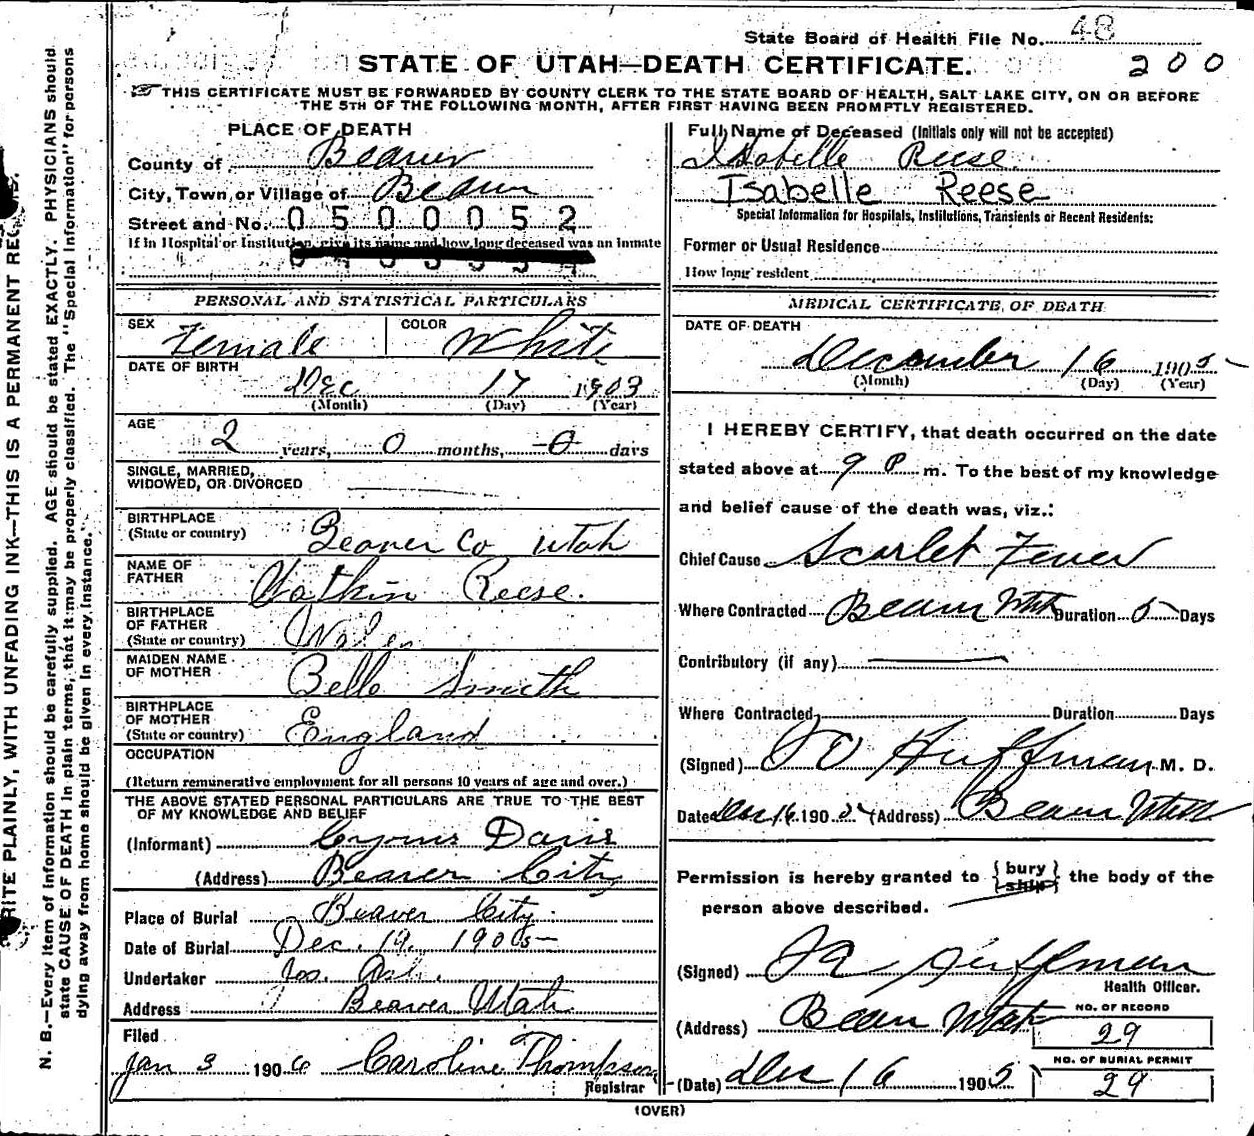 State Board of Health File No. 48
STATE OF UTAH—DEATH CERTIFICATE.
200
THIS CERTIFICATE MUST BE FORWARDED BY COUNTY CLERK TO THE STATE BOARD OF HEALTH, SALT LAKE CITY, ON OR BEFORE
THE 5TH OF THE FOLLOWING MONTH, AFTER FIRST HAVING BEEN PROMPTLY REGISTERED.
PLACE OF DEATH
County of Beaver
City, Town, or Village of Beaver
Street and No. 0500052
If in Hospital or Institution, give its name and how long deceased was an inmate
PERSONAL AND STATISTICAL PARTICULARS
SEX Female
COLOR White
DATE OF BIRTH
Dec 17 1903
(Month) (Day) (Year)
AGE
2 years, 0 months, 0 days
SINGLE, MARRIED,
WIDOWED, OR DIVORCED
BIRTHPLACE
(State or country) Beaver Co Utah
NAME OF
FATHER Watkin Reese.
BIRTHPLACE
OF FATHER
(State or country) Wales
MAIDEN NAME
OF MOTHER Belle Smith
BIRTHPLACE
OF MOTHER
(State or country) England
OCCUPATION
(Return remunerative employment for all persons 10 years of age and over.)
THE ABOVE STATED PERSONAL PARTICULARS ARE TRUE TO THE BEST
OF MY KNOWLEDGE AND BELIEF
(Informant) Cyrus Davis
(Address) Beaver City
Place of Burial Beaver City.
Date of Burial Dec. 19. 1905
Undertaker Jos.
Address Beaver Utah
Filed
Jan 3 1906 Caroline Thompson
Registrar
Full Name of Deceased (Initials only will not be accepted)
Isabelle Reese
Isabelle Reese
Special Information for Hospitals, Institutions, Transients or Recent Residents:
Former or Usual Residence
How long resident
MEDICAL CERTIFICATE OF DEATH
DATE OF DEATH
December 16 1905
(Month) (Day) (Year)
I HEREBY CERTIFY, that death occurred on the date
stated above at 9 P m. To the best of my knowledge
and belief cause of the death was, viz.:
Chief Cause Scarlet Fever
Where Contracted Beaver Utah Duration 5 Days
Contributory (if any)
Where Contracted Duration Days
(Signed) Huffman M. D.
Dated Dec 16 1905 (Address) Beaver Utah
Permission is hereby granted to { bury ship } the body of the
person above described.
(Signed) Huffman
Health Officer.
(Address) Beaver Utah
NO. OF RECORD
29
NO. OF BURIAL PERMIT
29
(Date) Dec 16 1905
(OVER)
N. B.—Every item of information should be carefully supplied. AGE should be stated EXACTLY. PHYSICIANS should
state CAUSE OF DEATH in plain terms, that it may be properly classified. The "Special Information" for persons
dying away from home should be given in every instance.
RITE PLAINLY, WITH UNFADING INK—THIS IS A PERMANENT REC